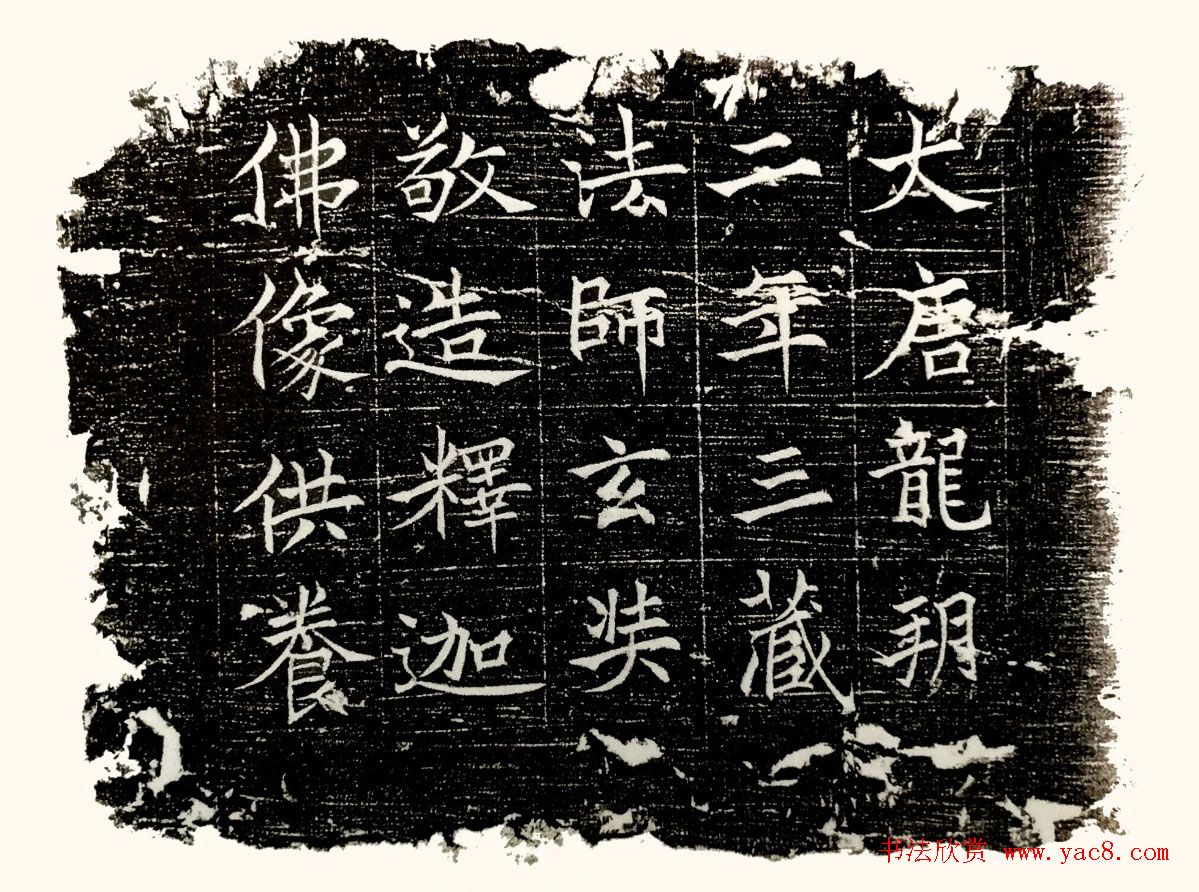 大唐龍朔
二年三藏
法師玄奘
敬造釋迦
佛像供養
书法欣赏 www.yac8.com